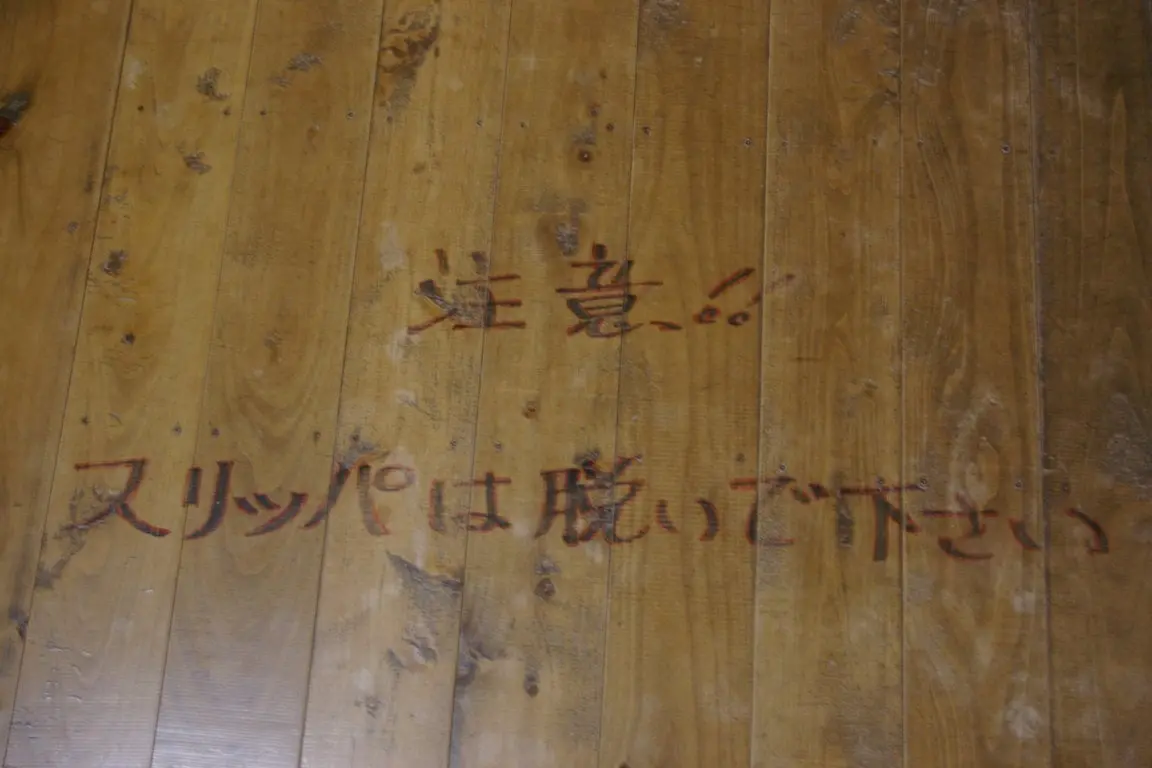 注意!!
スリッパは脱いで下さい